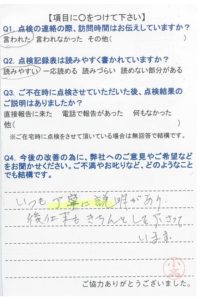 【項目に○をつけて下さい】
Q1. 点検の連絡の際、訪問時間はお伝えしていますか?
言われた 言われなかった その他( )
Q2. 点検記録表は読みやすく書かれていますか?
読みやすい 一応読める 読みづらい 読めない部分がある
Q3. ご不在時に点検させていただいた後、点検結果の
ご説明はありましたか?
直接報告に来た 電話で報告があった 何もなかった
他( )
※ご在宅時に点検をさせて頂いている場合は無回答で結構です。
Q4. 今後の改善の為に、弊社へのご意見やご希望などを
お聞かせください。ご不満やお叱りなど、どのようなことでも
結構です。
いつも丁寧に説明があり
後仕末もきちんとして下さって
います
ご協力ありがとうございました。